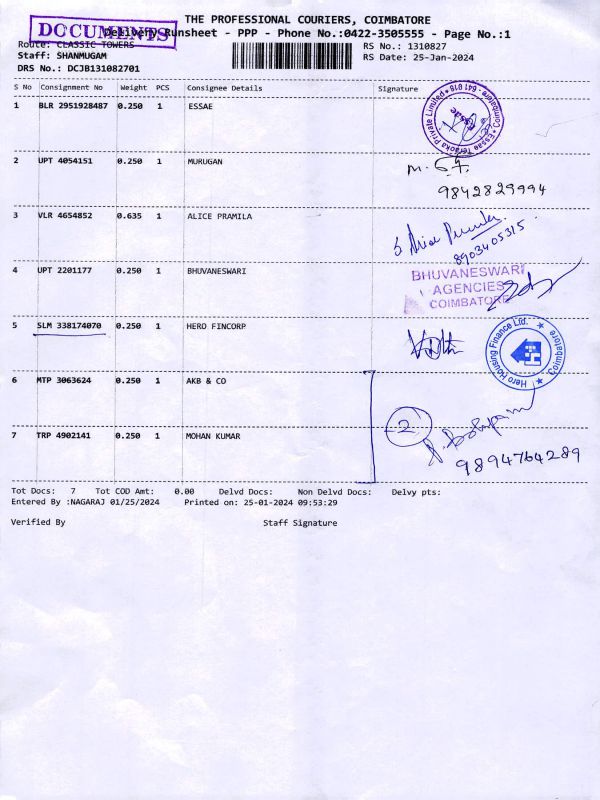 THE PROFESSIONAL COURIERS, COIMBATORE
DOCUMENTS
Delivery Runsheet - PPP - Phone No.:0422-3505555 - Page No.:1
Route: CLASSIC TOWERS
RS No.: 1310827
Staff: SHANMUGAM
RS Date: 25-Jan-2024
DRS No.: DCJB131082701
S No Consignment No Weight PCS Consignee Details Signature
1 BLR 2951928487 0.250 1 ESSAE
Essae Teraoka Private Limited * Coimbatore - 641 018 *
Essae
2 UPT 4054151 0.250 1 MURUGAN
9842829994
3 VLR 4654852 0.635 1 ALICE PRAMILA
8903405315
4 UPT 2201177 0.250 1 BHUVANESWARI
BHUVANESWARI
AGENCIES
COIMBATORE
5 SLM 338174070 0.250 1 HERO FINCORP
Hero Housing Finance Ltd. * Coimbatore *
6 MTP 3063624 0.250 1 AKB & CO
2
7 TRP 4902141 0.250 1 MOHAN KUMAR
9894764289
Tot Docs: 7 Tot COD Amt: 0.00 Delvd Docs: Non Delvd Docs: Delvy pts:
Entered By :NAGARAJ 01/25/2024 Printed on: 25-01-2024 09:53:29
Verified By Staff Signature